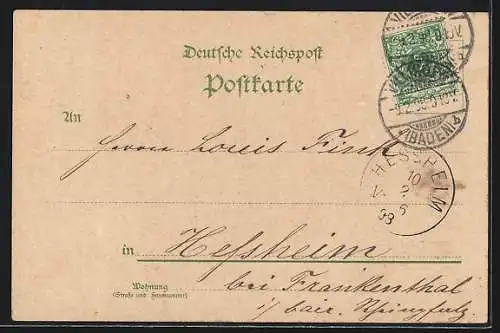 Deutsche Reichspost
Postkarte
An
Herrn Louis Fink
HESSHEIM
10
98
in Heßheim
Wohnung
(Straße und Hausnummer)
bei Frankenthal
i/ baer. Rheinpfalz.
(BADEN)